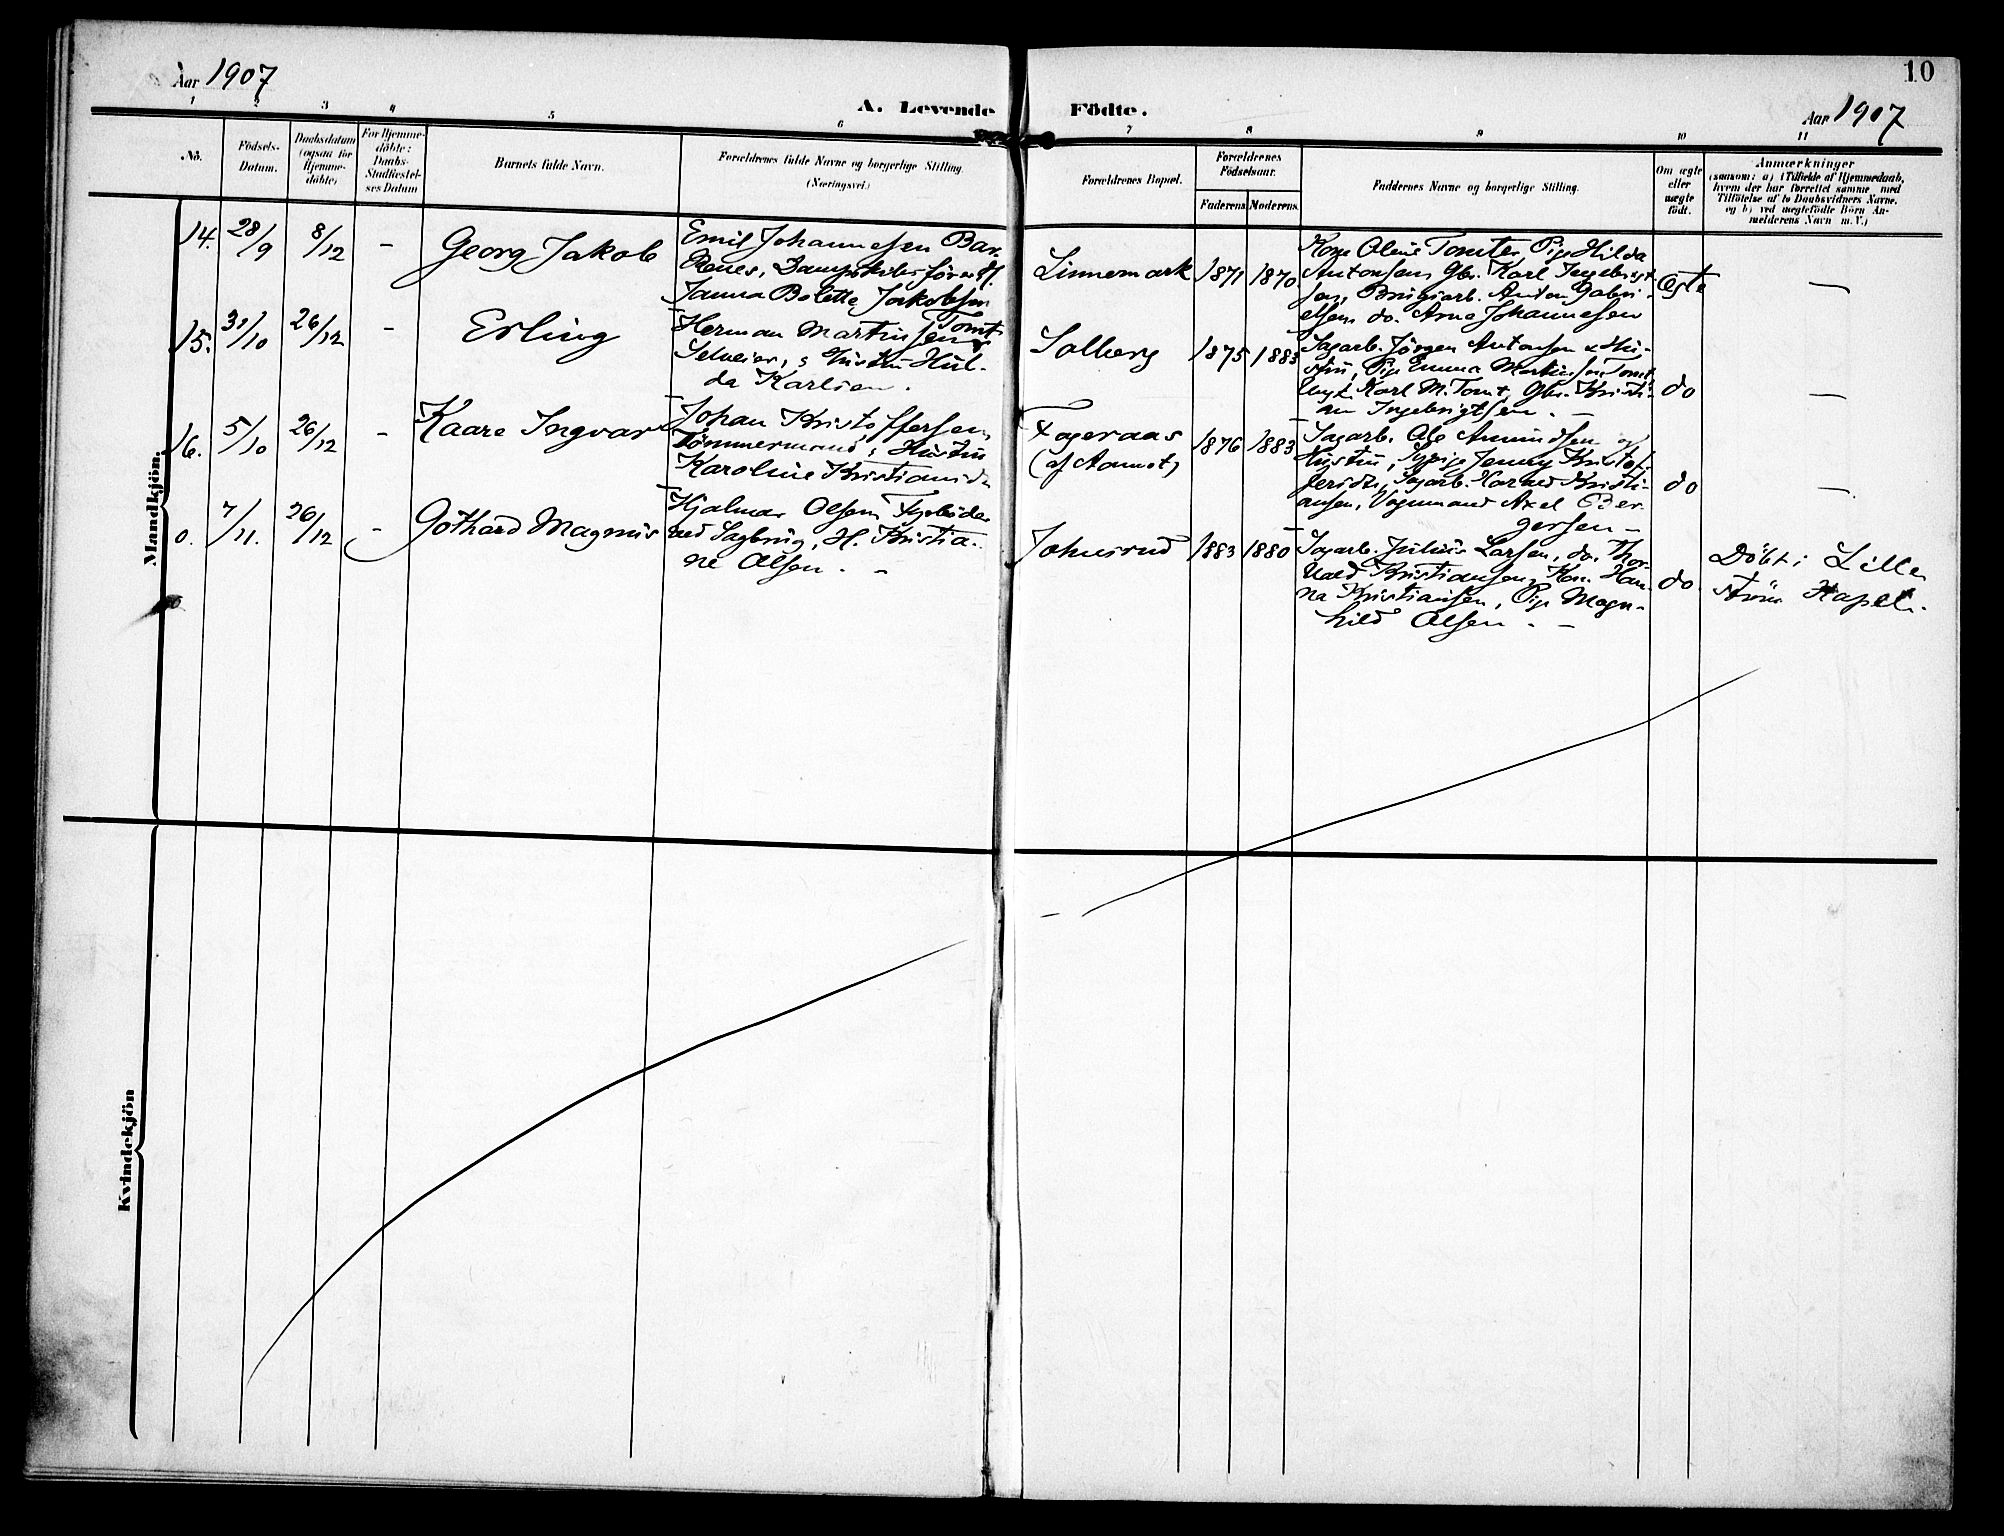 Aar 1907
10
A. Levende Födte.
Aar 1907
1 2 3 4 5 6 7 8 9 10 11
No.
Födsels-
Datum.
Daabsdatum
(ogsaa for
Hjemme-
döbte)
For Hjemme-
döbte:
Daabs-
Stadfæstel-
ses Datum
Barnets fulde Navn.
Forældrenes fulde Navne og borgerlige Stilling.
(Næringsvei.)
Forældrenes Bopæl.
Forældrenes
Födselsaar.
Faderens Moderens
Faddernes Navne og borgerlige Stilling.
Om ægte
eller
uægte
födt.
Anmærkninger
(saasom: a) i Tilfælde af Hjemmedaab,
hvem der har forrettet samme, med
Tilföielse af to Daabsvidners Navne.
og b) ved uægtefödte Börn An-
melderens Navn m. V.)
Mandkjön.
14. 28/9 8/12 - Georg Jakob
Emil Johannesen Bar-
Janna Bolette Jakobsen
Linnemark 1871 1870
Kone Oline Tomter, Pige Hilda
Antonsen, Gbr. Karl Ingebrigt-
sen, Brugsarb. Anton Gabri-
elsen do. Arne Johannesen
Ægte —
15. 31/10 26/12 - Erling
Herman Martinsen Tomt
Selveier, Hustru Hul-
da Karlsen.
Solberg 1875 1883
Sagarb. Jörgen Antonsen & Hu-
stru, Pige Emma Martinsen Tomt
Ungk. Karl M. Tomt, Gbr. Kristi-
an Ingebrigtsen. -
do —
16. 5/10 26/12 - Kaare Ingvar
Johan Kristoffersen,
Tömmermand, Hustru
Karoline Kristiansdr
Fageraas
(af Aamot)
1876 1883
Sagarb. Ole Amundsen og
Hustru, Jenny Kristof-
fersdr, Sagarb. Konrad Kristi-
ansen, Vognmand Axel Bir-
gersen -
do —
0. 7/11. 26/12 - Gothard Magnus
Hjalmar Olsen Fyrböder
ved Sagbrug, H. Kristia-
ne Olsen. -
Johnsrud 1883 1880
Sagarb. Julius Larsen, do. Thor-
vald Kristiansen, Kone Han-
na Kristiansen, Pige Magn-
hild Olsen. -
do.
Döbt i Lille
ström Kapel.
Kvindekjön